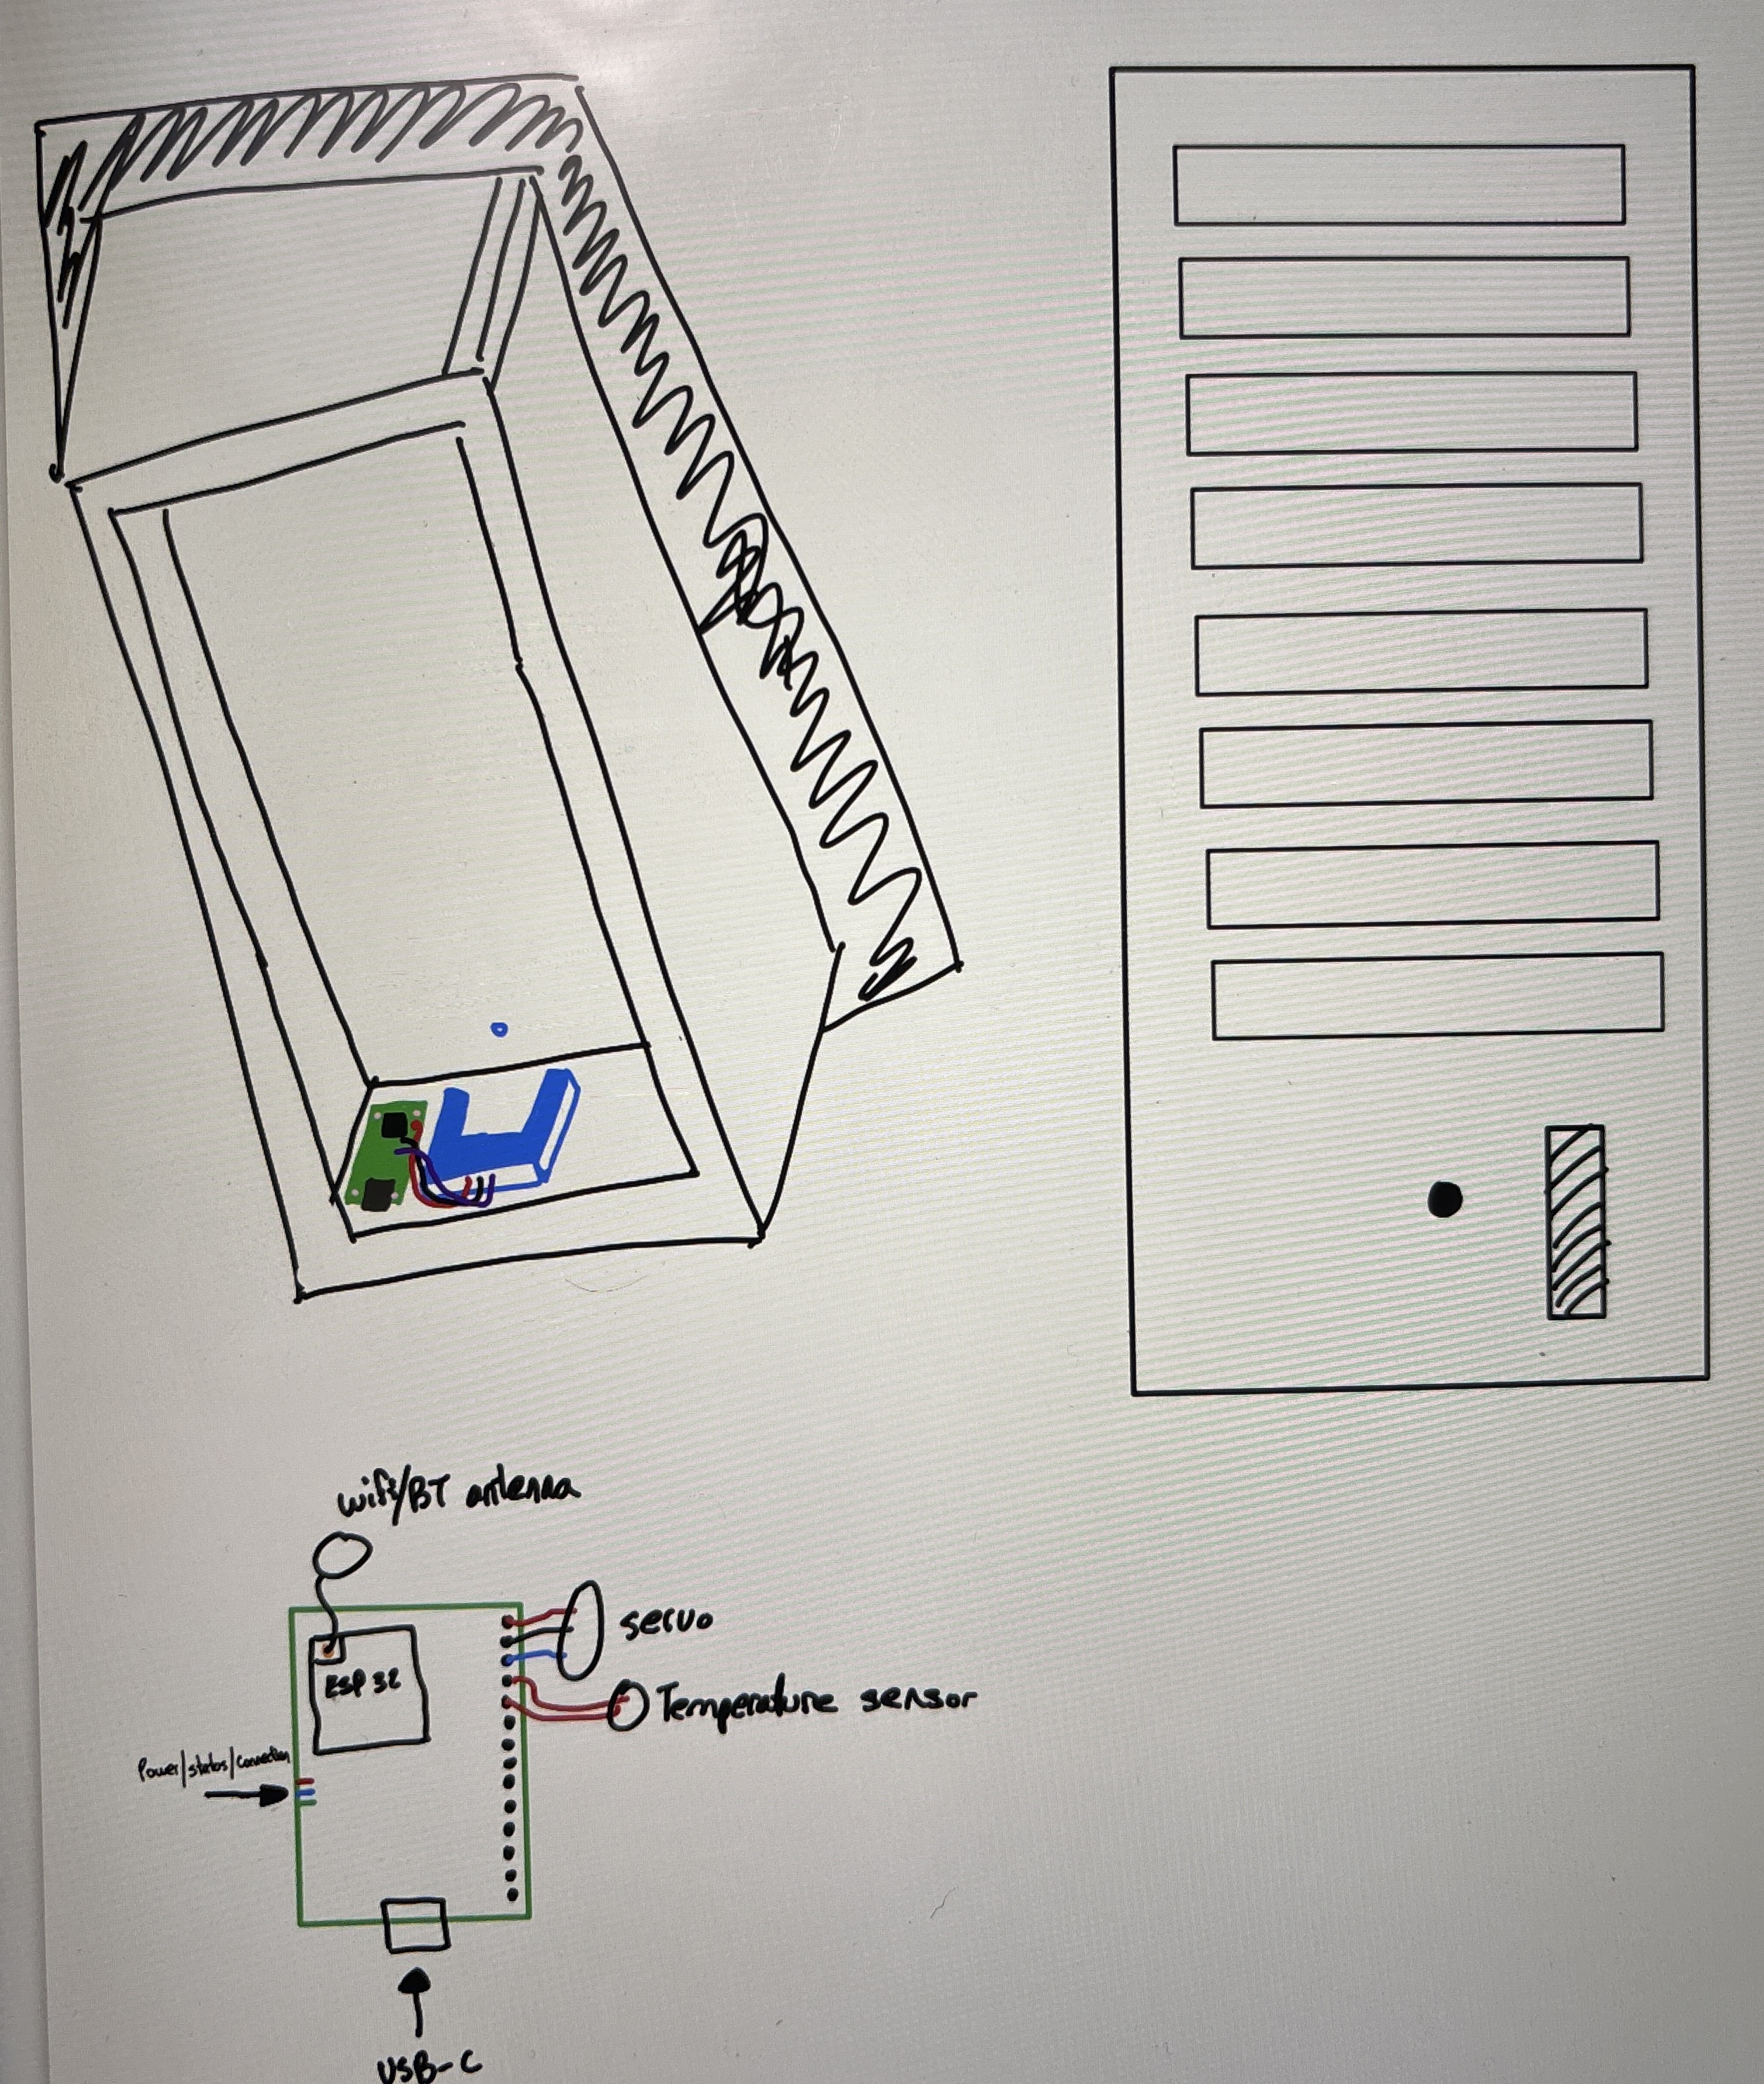 wifi/BT antenna
servo
ESP 32
Temperature sensor
Power/status/connection
USB-C